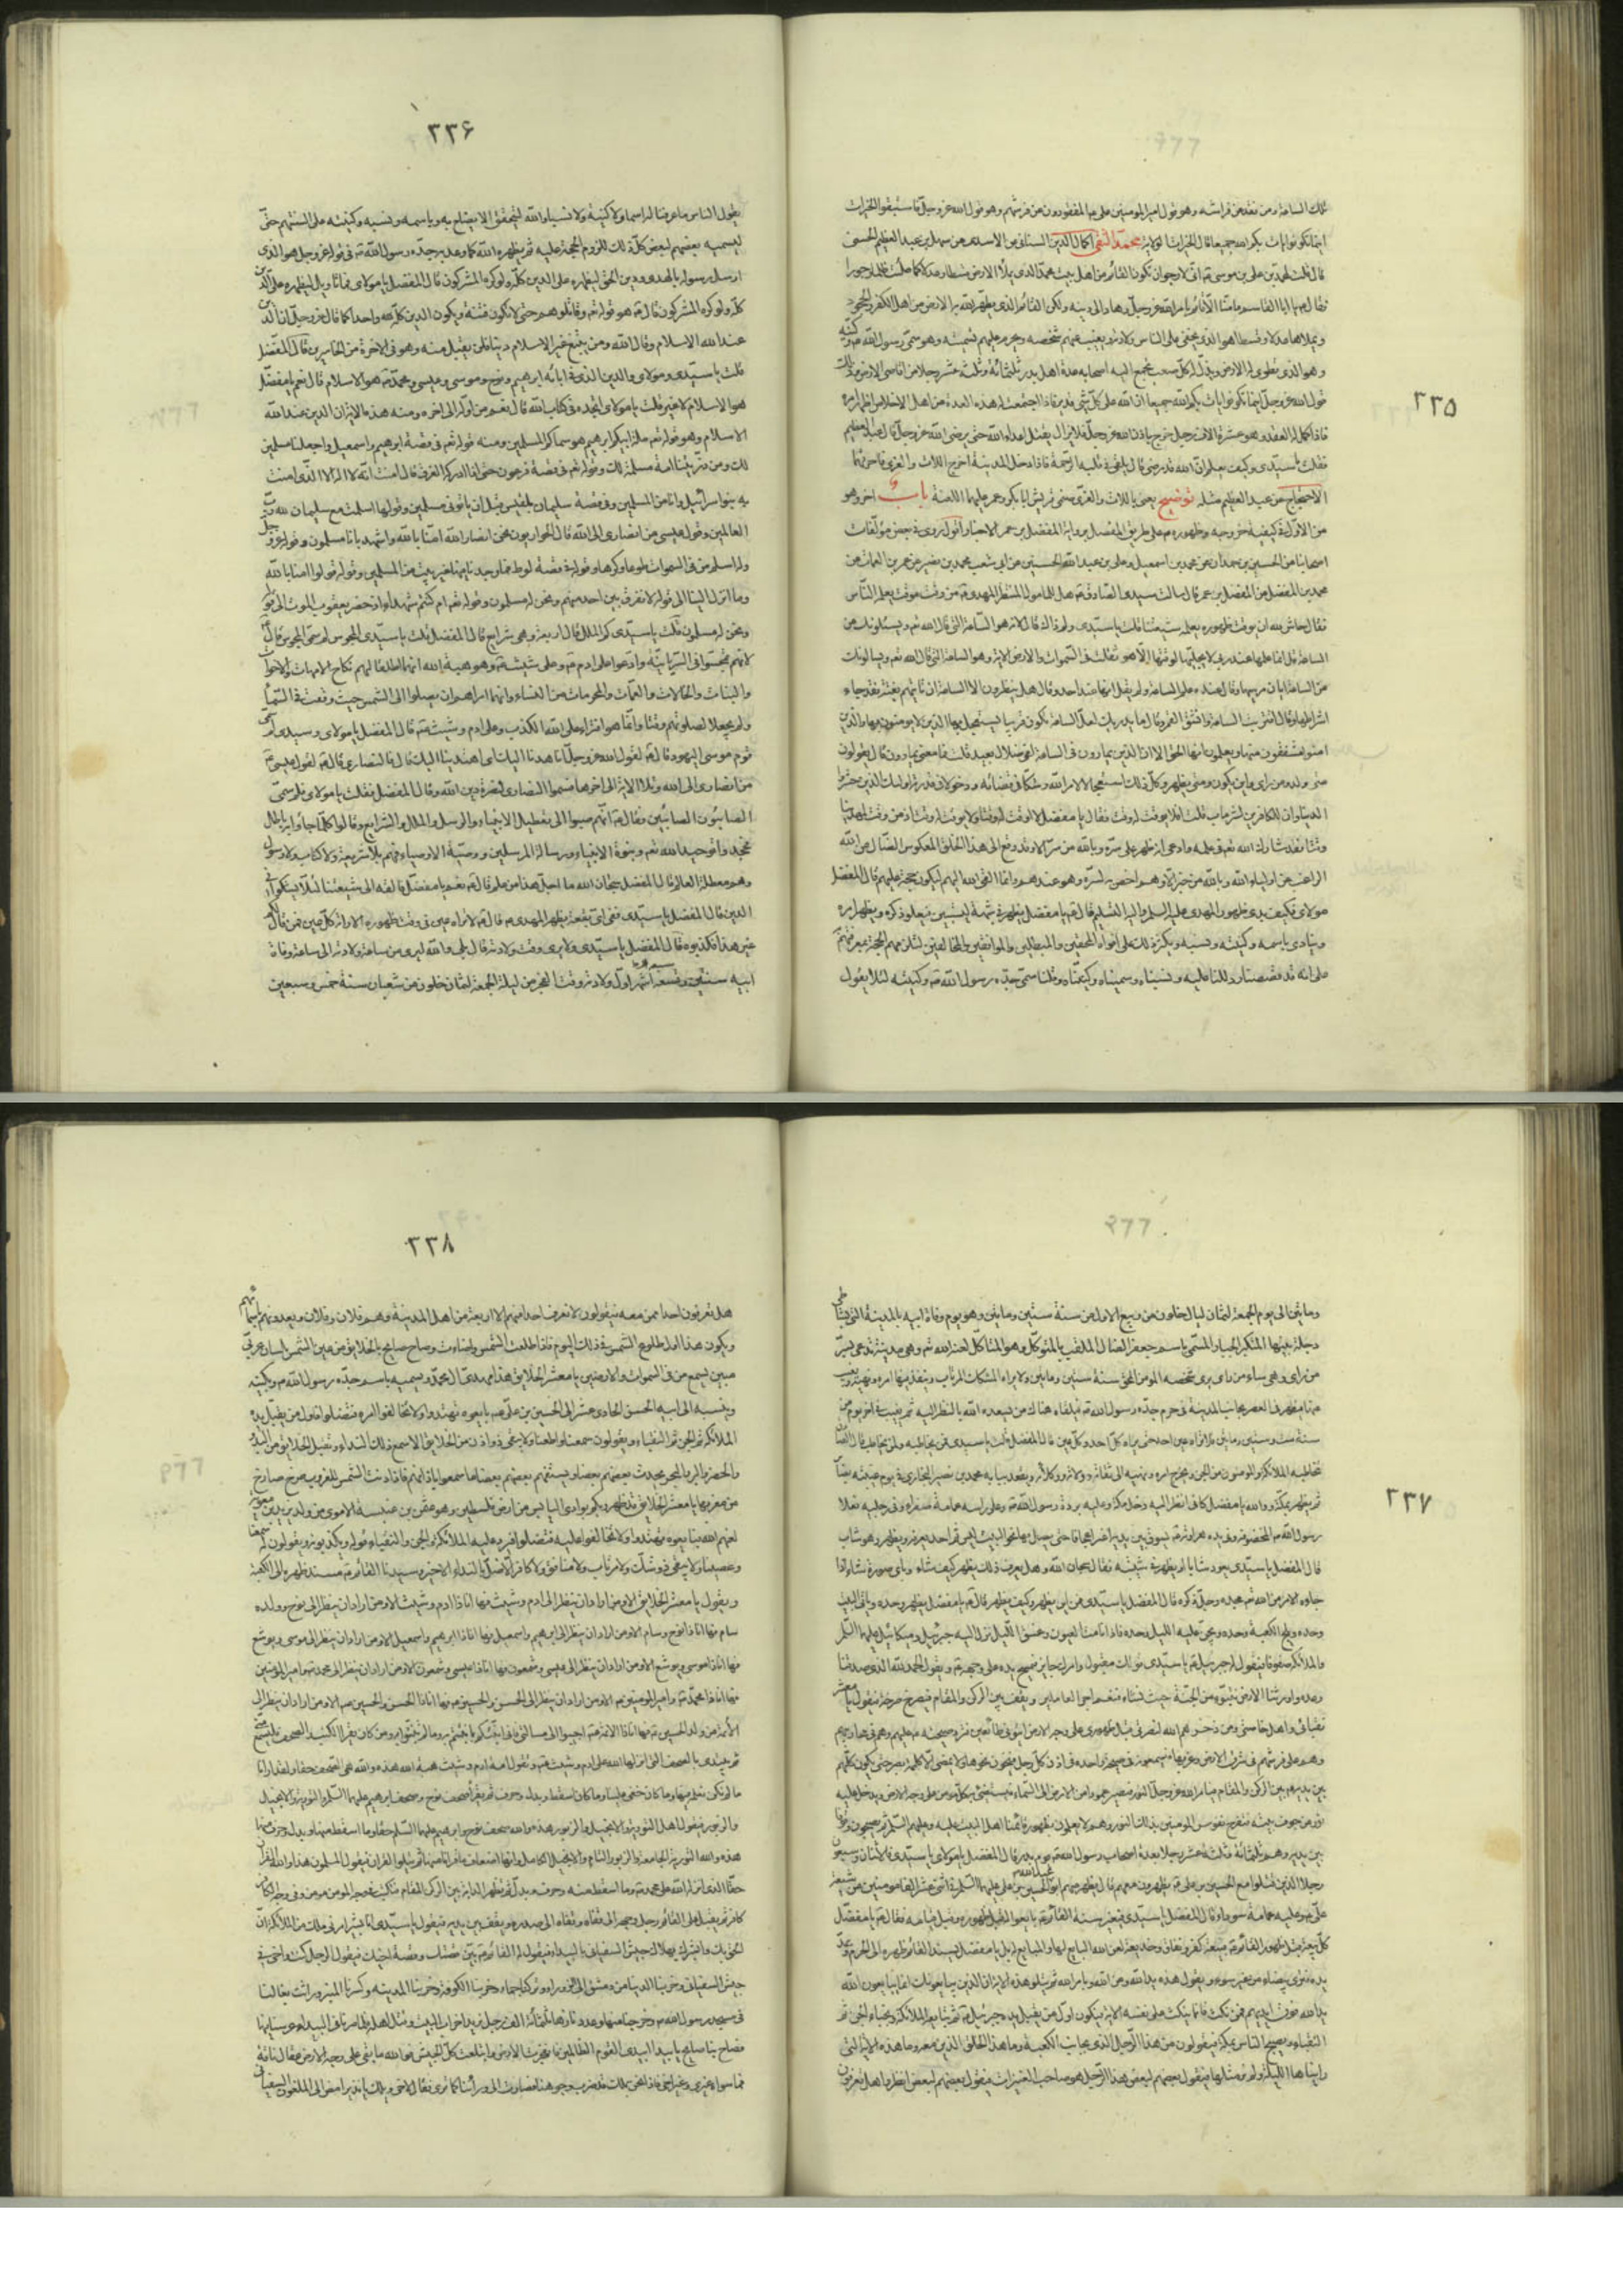 ٢٣٥
تلك الساعة ومن يفقد عن فراشه وهو قول امير المؤمنين على هم المفقودون عن فرشهم وهو قول الله عز وجل فاستبقوا الخيرات
اينما تكونوا يات بكم الله جميعا قال الخيرات الولاية محمد التقى اكمال الدين السنانى عن الاسدى عن سهل عن عبد العظيم الحسنى
قال قلت لمحمد بن على بن موسى انى لارجو ان تكون القائم من اهل بيت محمد الذى يملأ الارض قسطا وعدلا كما ملئت ظلما وجورا
فقال يا ابا القاسم ما منا الا قائم بامر الله عز وجل وهاد الى دينه ولكن القائم الذى يطهر الله به الارض من اهل الكفر والجحود
ويملاها عدلا وقسطا هو الذى يخفى على الناس ولادته ويغيب عنهم شخصه ويحرم عليهم تسميته وهو سمى رسول الله وكنيه
وهو الذى تطوى له الارض ويذل له كل صعب يجتمع اليه اصحابه عدة اهل بدر ثلثمائة وثلث عشر رجلا من اقاصى الارض وذلك
قول الله عز وجل اينما تكونوا يات بكم الله جميعا ان الله على كل شئ قدير فاذا اجتمعت له هذه العدة من اهل الاخلاص اظهر امره
فاذا اكمل له العقد وهو عشرة الاف رجل خرج باذن الله عز وجل فلا يزال يقتل اعداء الله حتى يرضى الله عز وجل قال عبد العظيم
فقلت يا سيدى وكيف يعلم ان الله قد رضى قال يلقى فى قلبه الرحمة فاذا دخل المدينة اخرج اللات والعزى فاحرقهما
الاحتجاج عن عبد العظيم مثله توضيح يعنى باللات والعزى صنمى قريش ابا بكر وعمر عليهما اللعنة باب اخر وهو
من الاول فى كيفية خروجه وظهوره على طريق المفصل برواية المفضل بن عمر الاخبار اقول روى فى بعض مؤلفات
اصحابنا من الحسين بن حمدان عن محمد بن اسمعيل وعلى بن عبد الله الحسنين عن ابى شعيب محمد بن نصير عن عمر بن الفرات عن
محمد بن المفضل عن المفضل بن عمر قال سالت سيدى الصادق هل للمامول المنتظر المهدى من وقت موقت يعلمه الناس
فقال حاش لله ان يوقت ظهوره بعلمه شيعتنا قلت يا سيدى ولم ذاك قال لانه هو الساعة التى قال الله تعالى ويسئلونك عن
الساعة قل انما علمها عند ربى لا يجليها لوقتها الا هو ثقلت فى السموات والارض الاية وهو الساعة التى قال الله تعالى يسالونك
عن الساعة ايان مرسيها وقال عنده علم الساعة ولم يقل انها عند احد وقال هل ينظرون الا الساعة ان تاتيهم بغتة فقد جاء
اشراطها وقال اقتربت الساعة وانشق القمر وقال ما يدريك لعل الساعة تكون قريبا يستعجل بها الذين لا يؤمنون بها والذين
امنوا مشفقون منها ويعلمون انها الحق الا ان الذين يمارون فى الساعة لفى ضلال بعيد قلت فما معنى يمارون قال يقولون
متى ولد ومن راى واين يكون ومتى يظهر وكل ذلك استعجالا لامر الله وشكا فى قضائه ودخولا فى قدرته اولئك الذين خسروا
الدنيا وان للكافرين لشر ماب قلت افلا يوقت له وقت فقال يا مفضل لا اوقت له وقتا ولا يوقت له وقت ان من وقت لمهدينا
وقتا فقد شارك الله تعالى فى علمه وادعى انه ظهر على سره وما لله من سر الا وقد وقع الى هذا الخلق المعكوس الضال عن الله
الراغب عن اولياء الله وما لله من خبر الا وهم اخص به لسره وهو عندهم وانما القى الله اليهم ليكون حجة عليهم قال المفضل
مولاى فكيف بدء ظهور المهدى عليه السلم واليه التسليم قال يا مفضل يظهر فى شبهة ليستبين فيعلو ذكره ويظهر امره
وينادى باسمه وكنيته ونسبه ويكثر ذلك على افواه المحقين والمبطلين والموافقين والمخالفين لتلزمهم الحجة بمعرفتهم
على انه قد قصصنا ودللنا عليه ونسبناه وسميناه وكنيناه وقلنا سمى جده رسول الله وكنيته لئلا يقول
٢٣٦
يقول الناس ما عرفنا له اسما ولا كنية ولا نسبا والله ليتحقق الايضاح به وباسمه ونسبه وكنيته على السنتهم حتى
ليسميه بعضهم لبعض كل ذلك للزوم الحجة عليهم ثم يظهره الله كما وعد به جده رسول الله فى قوله عز وجل هو الذى
ارسل رسوله بالهدى ودين الحق ليظهره على الدين كله ولو كره المشركون قال المفضل يا مولاى فما تاويل ليظهره على الدين
كله ولو كره المشركون قال هو قوله تعالى وقاتلوهم حتى لا تكون فتنة ويكون الدين كله لله واحدا كما قال عز وجل ان الدين
عند الله الاسلام وقال الله ومن يبتغ غير الاسلام دينا فلن يقبل منه وهو فى الاخرة من الخاسرين قال المفضل
قلت يا سيدى ومولاى والدين الذى فى ابائه ابراهيم ونوح وموسى وعيسى ومحمد هو الاسلام قال نعم يا مفضل
هو الاسلام لا غير قلت يا مولاى اتجده فى كتاب الله قال نعم من اوله الى اخره ومنه هذه الاية ان الدين عند الله
الاسلام وهو قوله تعالى ملة ابيكم ابرهيم هو سماكم المسلمين ومنه قوله تعالى فى قصة ابرهيم واسمعيل واجعلنا مسلمين
لك ومن ذريتنا امة مسلمة لك وقوله تعالى فى قصة فرعون حتى اذا ادركه الغرق قال امنت انه لا اله الا الذى امنت
به بنوا سرائيل وانا من المسلمين وفى قصة سليمان بلقيس قبل ان ياتونى مسلمين وقولها اسلمت مع سليمان لله رب
العالمين وقول عيسى من انصارى الى الله قال الحواريون نحن انصار الله امنا بالله واشهد بانا مسلمون وقوله عز وجل
وله اسلم من فى السموات طوعا وكرها وقوله فى قصة لوط فما وجدنا فيها غير بيت من المسلمين وقوله قولوا امنا بالله
وما انزل الينا الى قوله لا نفرق بين احد منهم ونحن له مسلمون وقوله تعالى ام كنتم شهداء اذ حضر يعقوب الموت الى قوله
ونحن له مسلمون قلت يا سيدى كم الملل قال اربعة وهى شرايع قال المفضل قلت يا سيدى المجوس لم سمى المجوس قال
لانهم تمجسوا فى السريانية وادعوا على ادم وعلى شيث وهو هبة الله انهما اطلقا لهم نكاح الامهات والاخوات
والبنات والخالات والعمات والمحرمات من النساء وانهما امراهم ان يصلوا الى الشمس حيث وقفت فى السماء
ولم يجعلا لصلوتهم وقتا وانما هو افتراء على الله الكذب وعلى ادم وشيث قال المفضل يا مولاى وسيدى لم سمى
قوم موسى اليهود قال لقول الله عز وجل انا هدنا اليك اى اهتدينا اليك قال فالنصارى قال لقول عيسى
من انصارى الى الله وتلا الاية الى اخرها فسموا النصارى لنصرة دين الله وقال المفضل فقلت يا مولاى فلم سمى
الصابئون الصابئين فقال انهم صبوا الى تعطيل الانبياء والرسل والملل والشرايع وقالوا كلما جاؤا به باطل
فجحدوا توحيد الله تعالى ونبوة الانبياء ورسالة المرسلين ووصية الاوصياء فهم بلا شريعة ولا كتاب ولا رسول
وهم معطلة العالم قال المفضل سبحان الله ما اجل هذا من علم قال نعم يا مفضل فالقه الى شيعتنا لئلا يشكوا فى
الدين قال المفضل يا سيدى ففى اى بقعة يظهر المهدى قال لا تراه عين فى وقت ظهوره الا راته كل عين فمن قال لكم
غير هذا فكذبوه قال المفضل يا سيدى ولا يرى وقت ولادته قال بلى والله ليرى من ساعة ولادته الى ساعة وفاة
ابيه سنتين وتسعة اشهر اول ولادته وقت الفجر من ليلة الجمعة لثمان خلون من شعبان سنة خمس وسبعين
٢٣٧
ومائتين الى يوم الجمعة لثمان ليال خلون من ربيع الاول من سنة ستين ومايتين وهو يوم وفاة ابيه بالمدينة التى بشاطى
دجلة يبنيها المتكبر الجبار المسمى باسم جعفر الضال الملقب بالمتوكل وهو المتاكل لعنه الله تعالى وهى مدينة تدعى بسر
من راى وهى ساء من راى يرى شخصه المؤمن المحق سنة ستين ومايتين ولا يراه المشكك المرتاب وينفذ فيها امره ونهيه ويغيب
عنها فيظهر فى القصر بصابر بجانب المدينة فى حرم جده رسول الله فيلقاه هناك من يسعده الله بالنظر اليه ثم يغيب فى اخر يوم من
سنة ست وستين ومايتين فلا تراه عين احد حتى يراه كل احد وكل عين قال المفضل قلت يا سيدى فمن يخاطبه ولمن يخاطب قال الصادق
تخاطبه الملائكة والمؤمنون من الجن ويخرج امره ونهيه الى ثقاته وولاته ووكلائه ويقعد ببابه محمد بن نصير النميرى فى يوم غيبته بصابر
ثم يظهر بمكة ووالله يا مفضل كانى انظر اليه دخل مكة وعليه بردة رسول الله وعلى راسه عمامة صفراء وفى رجليه نعلا
رسول الله المخصوفة وفى يده هراوته يسوق بين يديه اعنزا عجافا حتى يصل بها نحو البيت ليس ثم احد يعرفه ويظهر وهو شاب
قال المفضل يا سيدى يعود شابا او يظهر فى شيبته فقال سبحان الله وهل يعرف ذلك يظهر كيف شاء وباى صورة شاء اذا
جاءه الامر من الله تعالى مجده وجل ذكره قال المفضل يا سيدى فمن اين يظهر وكيف يظهر قال يا مفضل يظهر وحده وياتى البيت
وحده ويلج الكعبة وحده ويجن عليه الليل وحده فاذا نامت العيون وغسق الليل نزل اليه جبرئيل وميكائيل عليهما السلم
والملائكة صفوفا فيقول له جبرئيل يا سيدى قولك مقبول وامرك جايز فيمسح يده على وجهه ويقول الحمد لله الذى صدقنا
وعده واورثنا الارض نتبوء من الجنة حيث نشاء فنعم اجر العاملين ويقف بين الركن والمقام فيصرخ صرخة فيقول يا معشر
نقبائى واهل خاصتى ومن ذخرهم الله لنصرتى قبل ظهورى على وجه الارض ائتونى طائعين فترد صيحته عليهم وهم فى محاريبهم
وهم على فرشهم فى شرق الارض وغربها فيسمعونه فى صيحة واحدة فى اذن كل رجل فيجيئون نحوها ولا يمضى لهم الا كلمحة بصر حتى يكون كلهم
بين يديه بين الركن والمقام فيامر الله عز وجل النور فيصير عمودا من الارض الى السماء فيستضئ به كل مؤمن على وجه الارض ويدخل عليه
نور من جوف بيته فتفرح نفوس المؤمنين بذلك النور وهم لا يعلمون بظهور قائمنا اهل البيت عليه وعليهم السلم ثم يصبحون وقوفا
بين يديه وهم ثلثمائة وثلثة عشر رجلا بعدة اصحاب رسول الله يوم بدر قال المفضل يا مولاى يا سيدى فاثنان وسبعون
رجلا الذين قتلوا مع الحسين بن على يظهرون معهم قال يظهر منهم ابو عبد الله الحسين بن على عليهما السلم فى اثنى عشر الفا مؤمنين من شيعة
على وعليه عمامة سوداء قال المفضل يا سيدى فبغير سنة القائم بايعوا له قبل ظهوره وقبل قيامه فقال يا مفضل
كل بيعة قبل ظهور القائم فبيعته كفر ونفاق وخديعة لعن الله المبايع لها والمبايع له بل يا مفضل يسند القائم ظهره الى الحرم ويمد
يده فترى بيضاء من غير سوء ويقول هذه يد الله وعن الله وبامر الله ثم يتلو هذه الاية ان الذين يبايعونك انما يبايعون الله
يد الله فوق ايديهم فمن نكث فانما ينكث على نفسه الاية فيكون اول من يقبل يده جبرئيل ثم يبايعه الملائكة ونجباء الجن ثم
النقباء ويصبح الناس بمكة فيقولون من هذا الرجل الذى بجانب الكعبة وما هذا الخلق الذين معه وما هذه الاية التى
رايناها الليلة ولم تر مثلها فيقول بعضهم لبعض هذا الرجل هو صاحب العنيزات فيقول بعضهم لبعض انظروا هل تعرفون
٢٣٨
هل تعرفون احدا ممن معه فيقولون لا نعرف احدا منهم الا اربعة من اهل المدينة وهم فلان وفلان ويعدونهم باسمائهم
ويكون هذا اول طلوع الشمس فى ذلك اليوم فاذا طلعت الشمس واضاءت صاح صايح بالخلايق من عين الشمس بلسان عربى
مبين يسمع من فى السموات والارضين يا معشر الخلايق هذا مهدى ال محمد ويسميه باسم جده رسول الله ويكنيه
وينسبه الى ابيه الحسن الحادى عشر الى الحسين بن على بايعوه تهتدوا ولا تخالفوا امره فتضلوا فاول من يقبل يده
الملائكة ثم الجن ثم النقباء ويقولون سمعنا واطعنا ولا يبقى ذو اذن من الخلايق الا سمع ذلك النداء وتقبل الخلايق من البدو
والحضر والبر والبحر يحدث بعضهم بعضا ويستفهم بعضهم بعضا ما سمعوا باذانهم فاذا دنت الشمس للغروب صرخ صارخ
من مغربها يا معشر الخلايق قد ظهر ربكم بوادى اليابس من ارض فلسطين وهو عثمن بن عنبسة الاموى من ولد يزيد بن معوية
لعنهم الله فبايعوه تهتدوا ولا تخالفوا عليه فتضلوا فيرد عليه الملائكة والجن والنقباء قوله ويكذبونه ويقولون له سمعنا
وعصينا ولا يبقى ذو شك ولا مرتاب ولا منافق ولا كافر الا ضل بالنداء الاخير وسيدنا القائم مسند ظهره الى الكعبة
ويقول يا معشر الخلايق الا ومن اراد ان ينظر الى ادم وشيث فها انا ذا ادم وشيث الا ومن اراد ان ينظر الى نوح وولده
سام فها انا ذا نوح وسام الا ومن اراد ان ينظر الى ابرهيم واسمعيل فها انا ذا ابرهيم واسمعيل الا ومن اراد ان ينظر الى موسى ويوشع
فها انا ذا موسى ويوشع الا ومن اراد ان ينظر الى عيسى وشمعون فها انا ذا عيسى وشمعون الا ومن اراد ان ينظر الى محمد وامير المؤمنين
فها انا ذا محمد وامير المؤمنين الا ومن اراد ان ينظر الى الحسن والحسين فها انا ذا الحسن والحسين الا ومن اراد ان ينظر الى
الائمة من ولد الحسين فها انا ذا الائمة اجيبوا الى مسالتى فانى انبئكم بما نبئتم به وما لم تنبئوا به ومن كان يقرا الكتب والصحف فليسمع منى
ثم يبتدى بالصحف التى انزلها الله على ادم وشيث وتقول امة ادم وشيث هبة الله هذه والله هى الصحف حقا ولقد ارانا
ما لم نكن نعلمه فيها وما كان خفى علينا وما كان اسقط وبدل وحرف ثم يقرأ صحف نوح وصحف ابرهيم عليهما السلم والتورية والانجيل
والزبور فيقول اهل التورية والانجيل والزبور هذه والله صحف نوح وابرهيم عليهما السلم حقا وما اسقط منها وبدل وحرف منها
هذه والله التورية الجامعة والزبور التام والانجيل الكامل وانها اضعاف ما قرانا منها ثم يتلوا القران فيقول المسلمون هذا والله القران
حقا الذى انزله الله على محمد وما اسقط منه وحرف وبدل ثم تظهر الدابة بين الركن والمقام فتكتب فى وجه المؤمن مؤمن وفى وجه الكافر
كافر ثم يقبل على القائم رجل وجهه الى قفاه وقفاه الى صدره ويقف بين يديه فيقول يا سيدى انا بشير امرنى ملك من الملائكة ان
الحق بك وابشرك بهلاك جيش السفيانى بالبيداء فيقول له القائم بين قصتك وقصة اخيك فيقول الرجل كنت واخى فى
جيش السفيانى وخربنا الدنيا من دمشق الى الزوراء وتركناها جماء وخربنا الكوفة وخربنا المدينة وكسرنا المنبر وراثت بغالنا
فى مسجد رسول الله وخرجنا منها وعددنا ثلثمائة الف رجل نريد اخراب البيت وقتل اهله فلما صرنا فى البيداء عرسنا فيها
فصاح بنا صايح يا بيداء ابيدى القوم الظالمين فانفجرت الارض وابتلعت كل الجيش فوالله ما بقى على وجه الارض عقال ناقة
فما سواه غيرى وغير اخى فاذا نحن بملك قد ضرب وجوهنا فصارت الى ورائنا كما ترى فقال لاخى ويلك يا نذير امض الى الملعون السفيانى